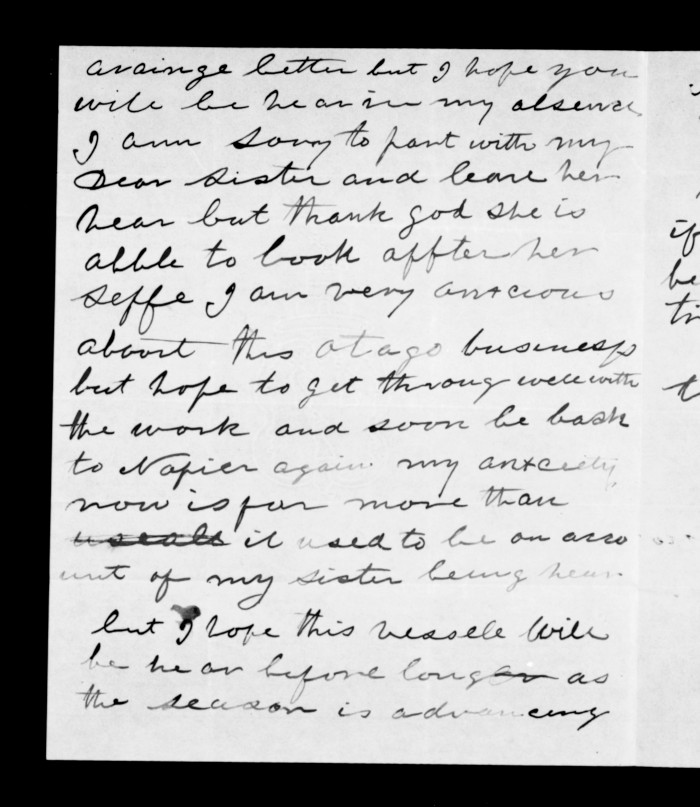 arainge better but I hope you
will be hear in my absence
I am sorry to part with my
Dear sister and leave her
hear but thank god she is
abble to look affter her
seffe I am very anxcious
about this otago business
but hope to get throug well with
the work and soon be back
to Napier again my anxciety
now is far more than
useall it used to be on acco
unt of my sister being hear
but I hope this vessele will
be hear before longer as
the season is advancing
if
be